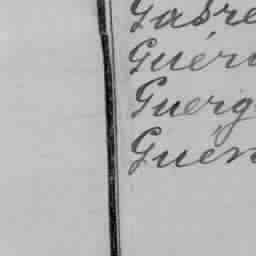 Gabre
Guéri
Guerg
Guér